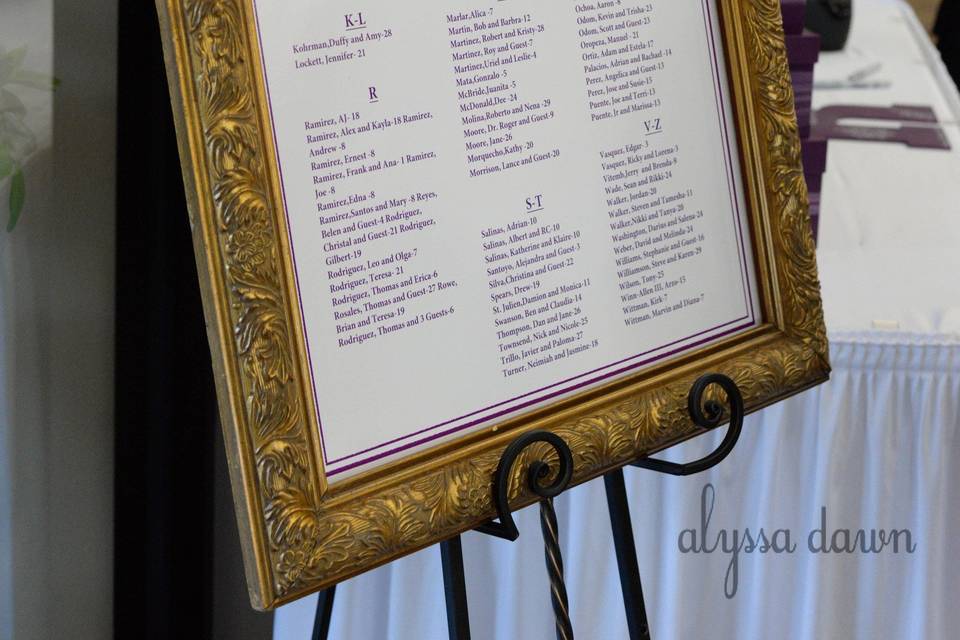 K-L
Kohrman,Duffy and Amy-28
Lockett, Jennifer- 21
R
Ramirez, AJ- 18
Ramirez, Alex and Kayla-18 Ramirez,
Andrew -8
Ramirez, Ernest -8
Ramirez, Frank and Ana- 1 Ramirez,
Joe -8
Ramirez,Edna -8
Ramirez,Santos and Mary -8 Reyes,
Belen and Guest-4 Rodriguez,
Christal and Guest-21 Rodriguez,
Gilbert-19
Rodriguez, Leo and Olga-7
Rodriguez, Teresa- 21
Rodriguez, Thomas and Erica-6
Rosales, Thomas and Guest-27 Rowe,
Brian and Teresa-19
Rodriguez, Thomas and 3 Guests-6
Marlar,Alica -7
Martin, Bob and Barbra-12
Martinez, Robert and Kristy-28
Martinez, Roy and Guest-7
Martinez,Uriel and Leslie-4
Mata,Gonzalo -5
McBride,Juanita -5
McDonald,Dee -24
Molina,Roberto and Nena -29
Moore, Dr. Roger and Guest-9
Moore, Jane-26
Morquecho,Kathy -20
Morrison, Lance and Guest-20
S-T
Salinas, Adrian-10
Salinas, Albert and RC-10
Salinas, Katherine and Klaire-10
Santoyo, Alejandra and Guest-3
Silva,Christina and Guest-22
Spears, Drew-19
St. Julien,Damion and Monica-11
Swanson, Ben and Claudia-14
Thompson, Dan and Jane-26
Townsend, Nick and Nicole-25
Trillo, Javier and Paloma-27
Turner, Neimiah and Jasmine-18
Ochoa, Aaron -8
Odom, Kevin and Trisha-23
Odom, Scott and Guest-23
Oropeza, Manuel -21
Ortiz, Adam and Estela-17
Palacios, Adrian and Rachael -14
Perez, Angelica and Guest-13
Perez, Jose and Susie-15
Puente, Joe and Terri-13
Puente, Jr and Marissa-13
V-Z
Vasquez, Edgar- 3
Vasquez, Ricky and Lorena-3
Vitemb,Jerry and Brenda-9
Wade, Sean and Rikki-24
Walker, Jordan-20
Walker, Steven and Tamesha-11
Walker,Nikki and Tanya-20
Washington, Darius and Salena-28
Weber, David and Melinda-24
Williams, Stephanie and Guest-16
Williamson, Steve and Karen-29
Wilson, Tony-25
Winn-Allen III, Arno-15
Wittman, Kirk-7
Wittman, Marvin and Diana-7
alyssa dawn